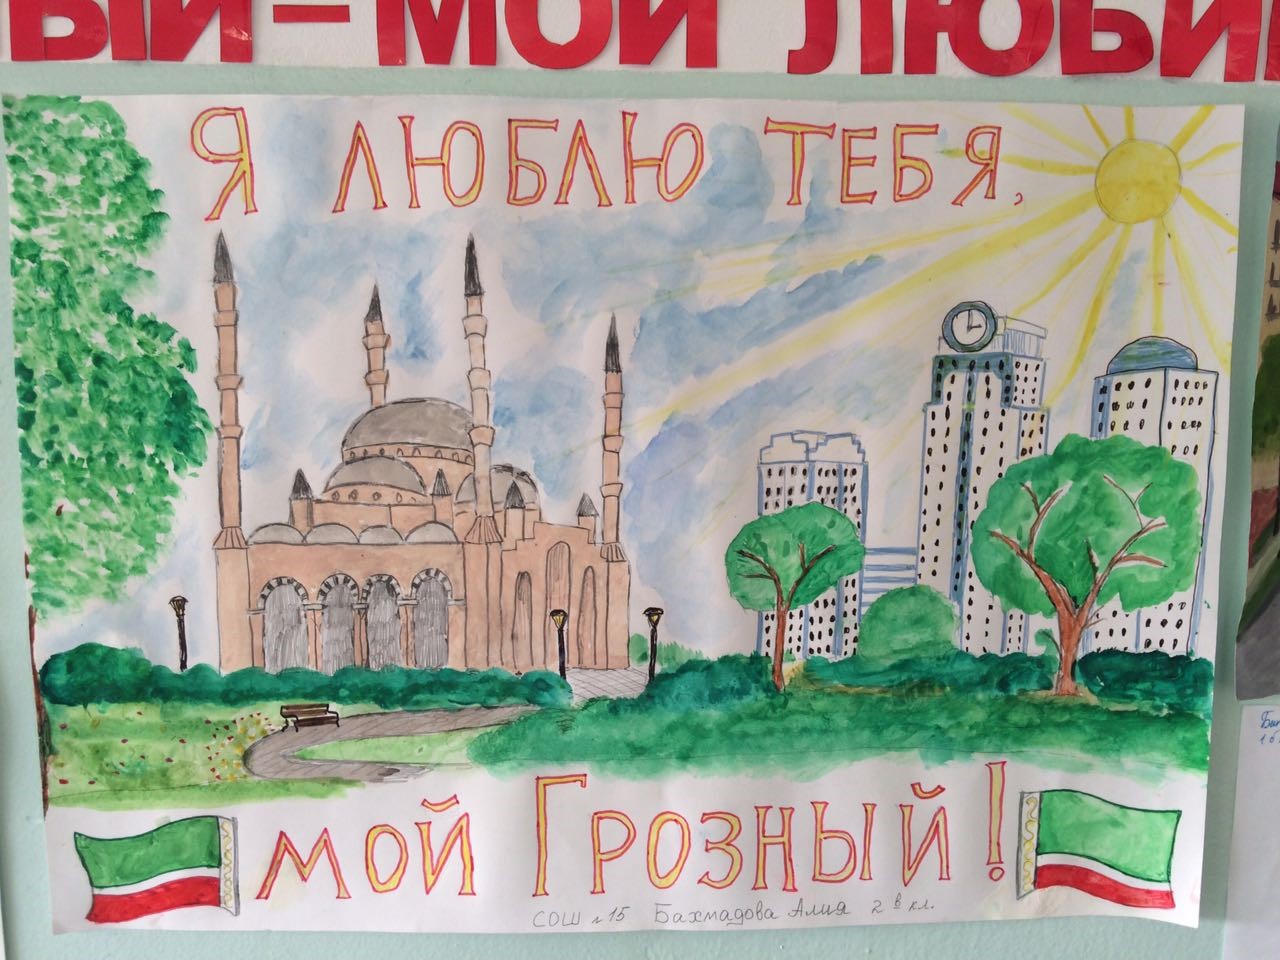 ЫЙ - МОЙ ЛЮБИ
Я ЛЮБЛЮ ТЕБЯ,
МОЙ ГРОЗНЫЙ!
СОШ №15 Бахмадова Алия 2 в кл.